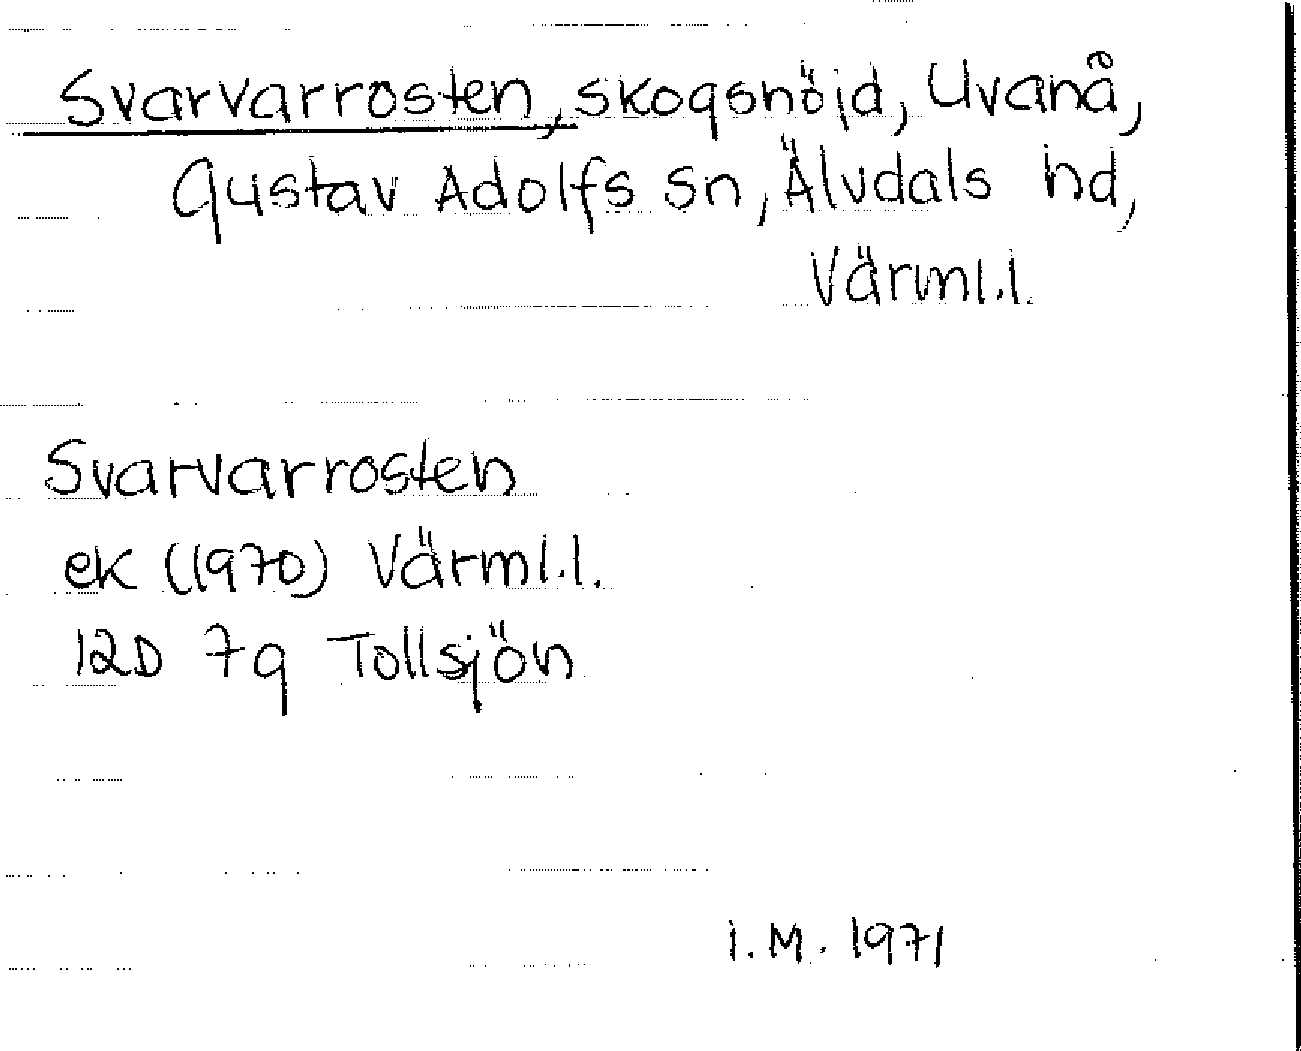 Svarvarrosten, skogshöjd, Uvanå,
Gustav Adolfs sn, Älvdals hd,
Värml.l.
Svarvarrosten
ek (1970) Värml.l.
12D 7g Tollsjön
I.M. 1971